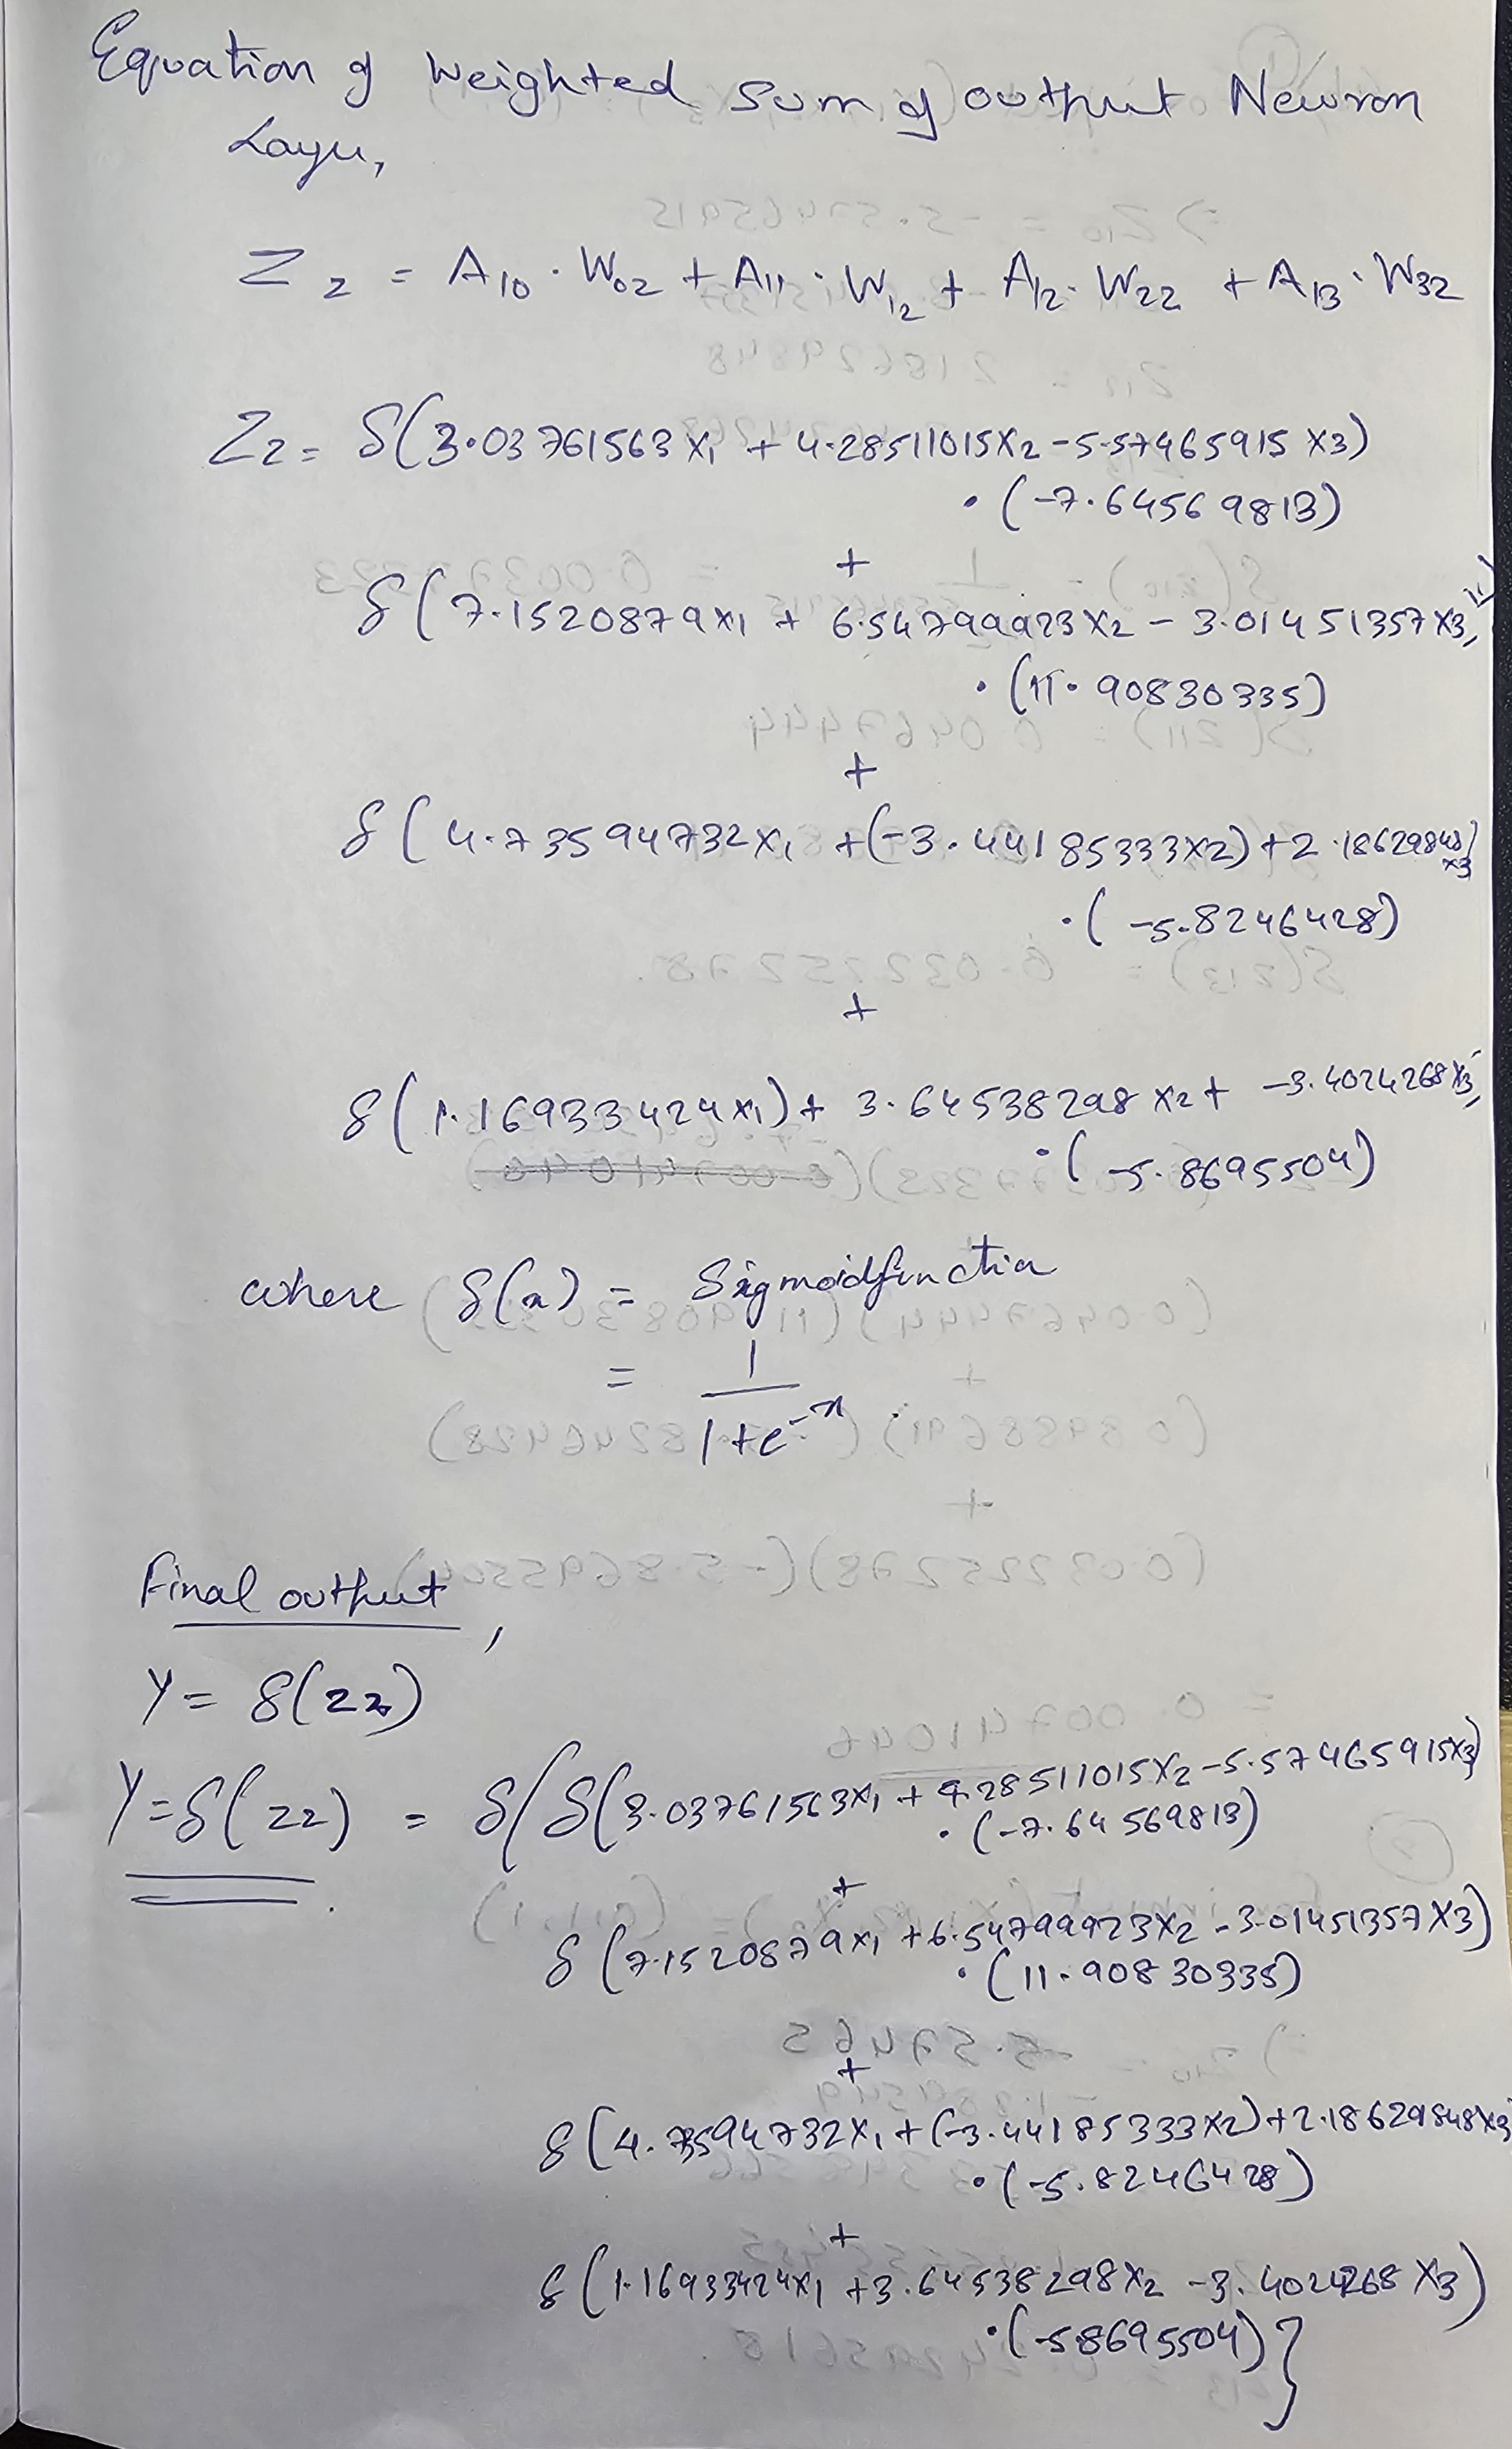 Equation of Weighted Sum of output Neuron
Layer,
Z2 = A10 · W02 + A11 · W12 + A12 · W22 + A13 · W32
Z2 = δ(3.03761563x1 + 4.28511015x2 - 5.57465915 x3)
· (-7.64569813)
+
δ(7.1520879x1 + 6.54799923x2 - 3.01451357x3)
· (11.90830335)
+
δ(4.73594732x1 + (-3.44185333x2) + 2.18629848x3)
· (-5.8246428)
+
δ(1.16933424x1) + 3.64538298x2 + -3.4024268x3)
· (-5.8695504)
where δ(x) = Sigmoidfunction
= 1
1+e^-x
Final output,
Y = δ(z2)
Y = δ(z2) = δ{δ(3.03761563x1 + 4.28511015x2 - 5.57465915x3)
· (-7.64569813)
+
δ(7.1520879x1 + 6.54799923x2 - 3.01451357x3)
· (11.90830335)
+
δ(4.73594732x1 + (-3.44185333x2) + 2.18629848x3)
· (-5.8246428)
+
δ(1.16933424x1 + 3.64538298x2 - 3.4024268x3)
· (-5.8695504)}